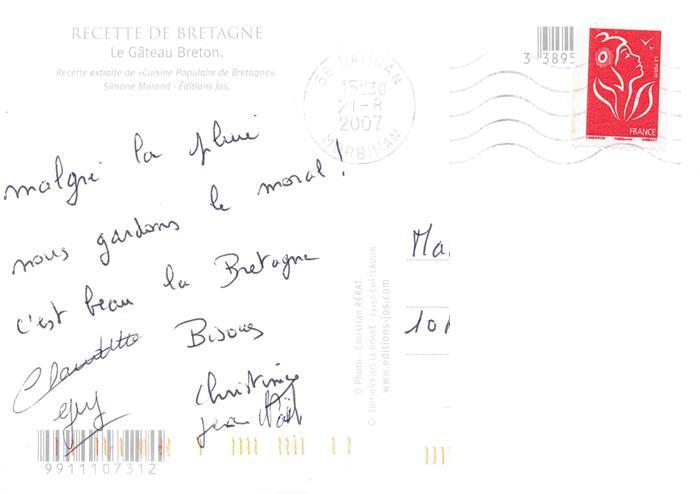 RECETTE DE BRETAGNE
Le Gâteau Breton.
Recette extraite de «Cuisine Populaire de Bretagne».
Simone Morand - Éditions Jos.
56 DAMGAN
15H30
21-8
2007
MORBIHAN
3 3895
LA POSTE
FRANCE
malgré la pluie
nous gardons le moral !
c'est beau la Bretagne
Bisous
Claudette
Guy
Christine
Jean Noël
Ma
10
© Photo : Christian RÉRAT.
© ÉDITIONS JOS LE DOARÉ - 29150 CHÂTEAULIN
www.editions-jos.com
9911107312